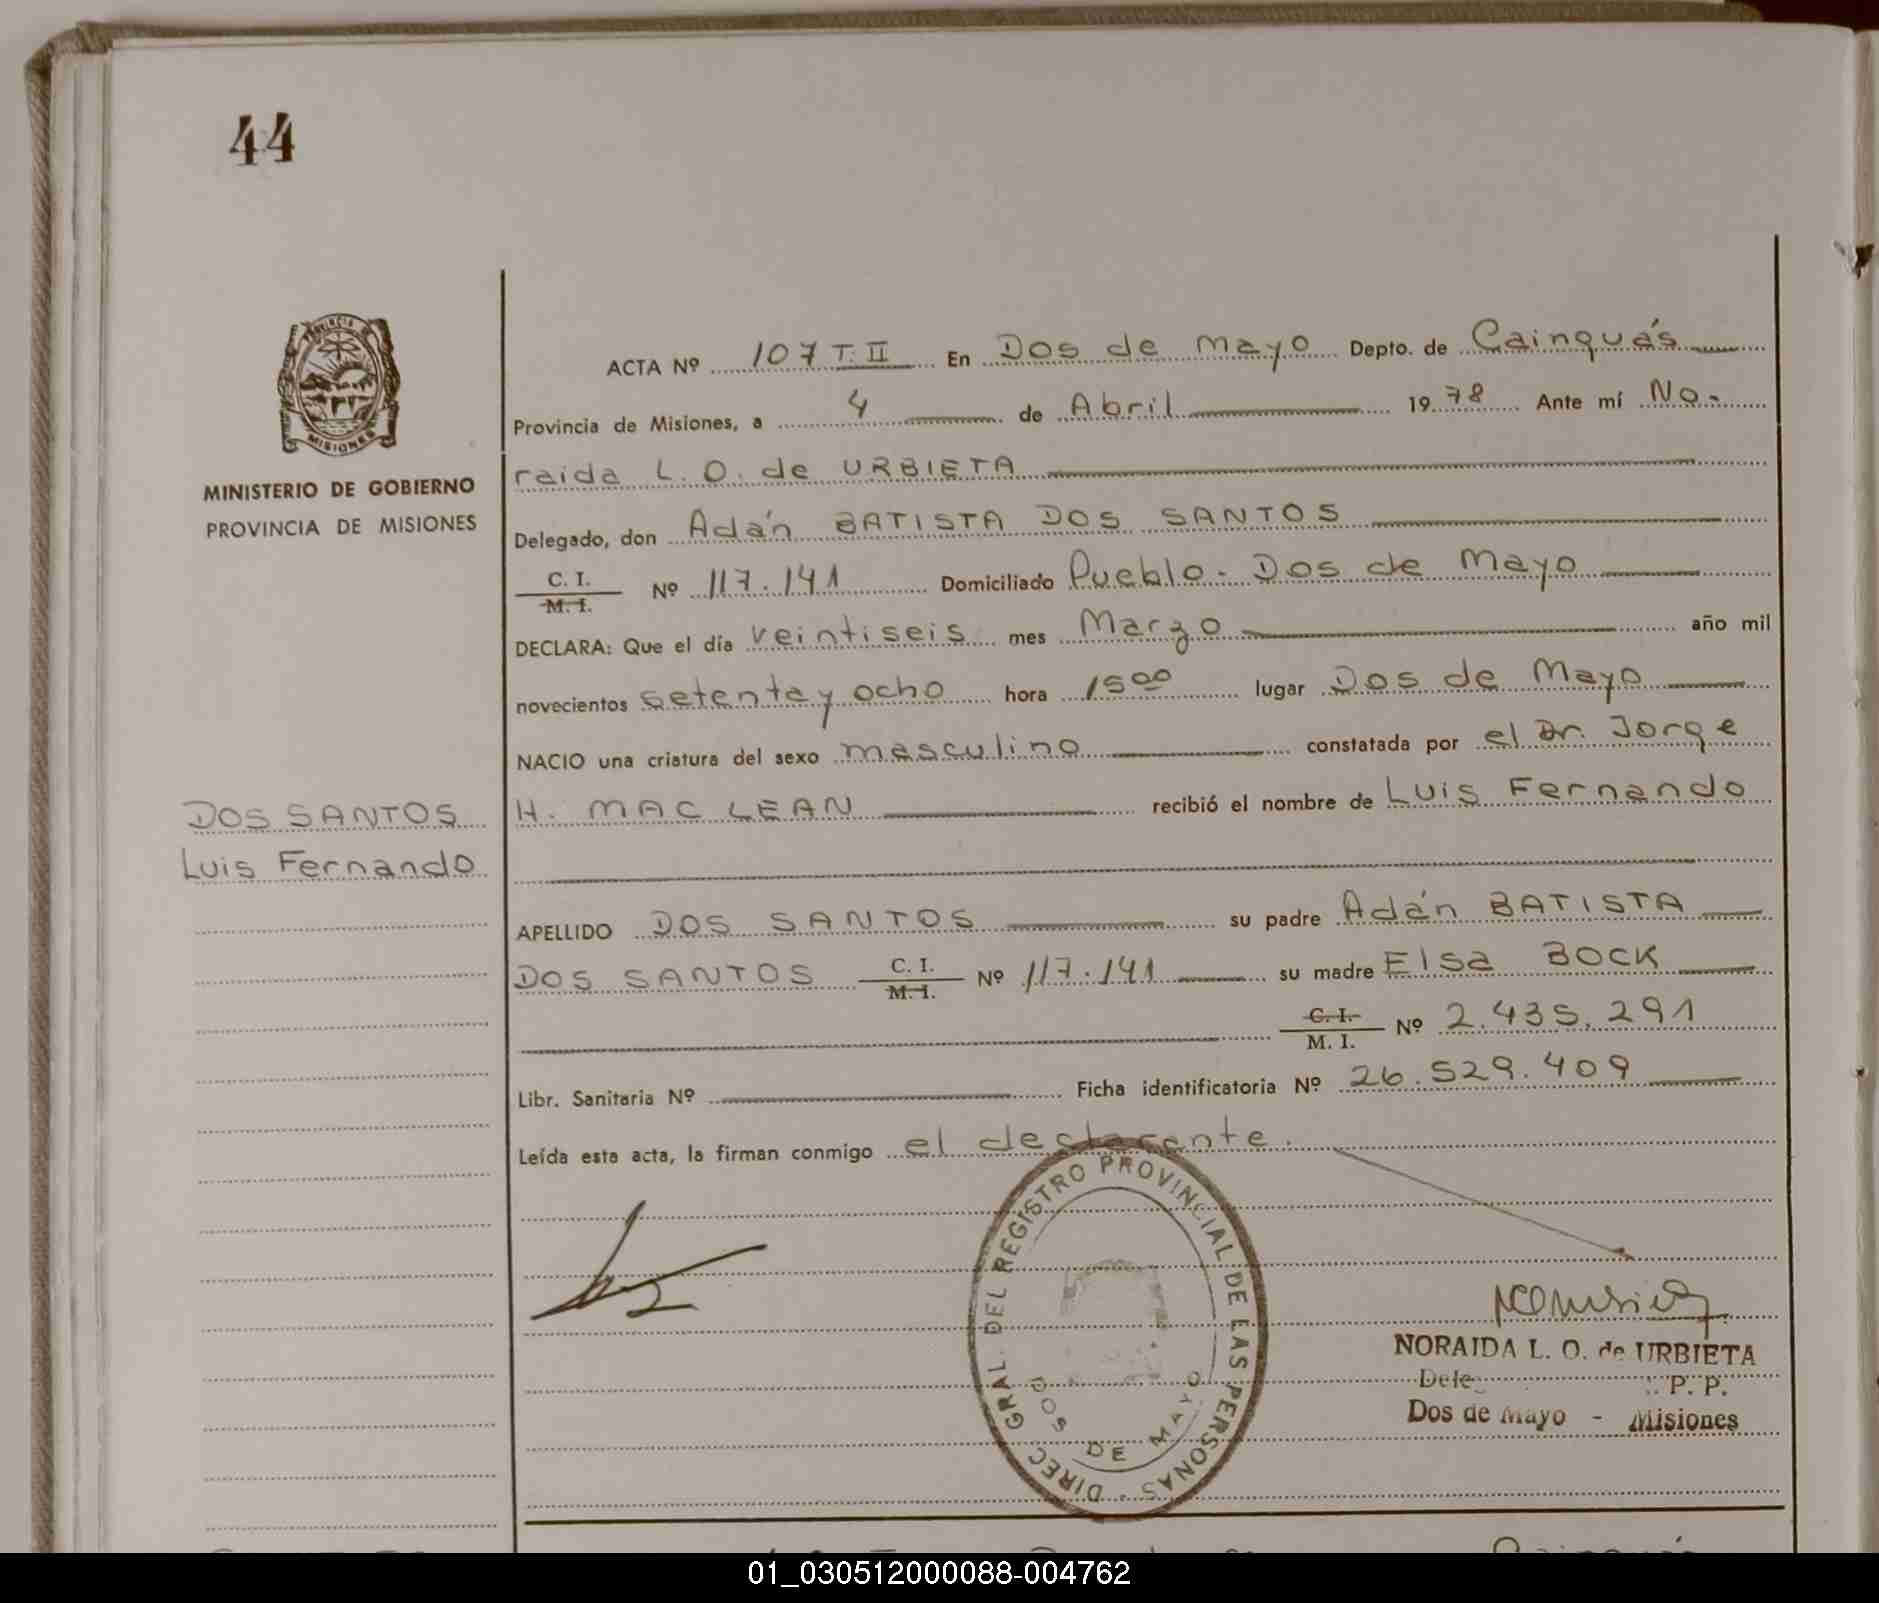 44
PROVINCIA DE
MISIONES
MINISTERIO DE GOBIERNO
PROVINCIA DE MISIONES
DOS SANTOS
Luis Fernando
ACTA Nº 107 T. II En Dos de Mayo Depto. de Cainguás
Provincia de Misiones, a 4 de Abril 1978 Ante mí No-
raida L. O. de URBIETA
Delegado, don Adán BATISTA DOS SANTOS
C. I.
M. I. Nº 117.141 Domiciliado Pueblo - Dos de Mayo
DECLARA: Que el día veintiseis mes Marzo año mil
novecientos setenta y ocho hora 15 00 lugar Dos de Mayo
NACIO una criatura del sexo masculino constatada por el Dr. Jorge
H. MAC LEAN recibió el nombre de Luis Fernando
APELLIDO DOS SANTOS su padre Adán BATISTA
DOS SANTOS C. I. M. I. Nº 117.141 su madre Elsa BOCK
C. I. M. I. Nº 2.435.291
Libr. Sanitaria Nº Ficha identificatoria Nº 26.529.409
Leída esta acta, la firman conmigo el declarante.
DIREC GRAL. DEL REGISTRO PROVINCIAL DE LAS PERSONAS
DOS DE MAYO
NORAIDA L. O. de URBIETA
P. P.
Dos de Mayo - Misiones
01_030512000088-004762